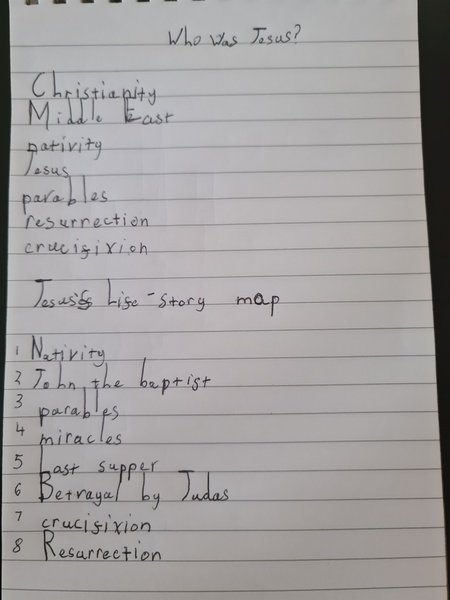 Who was Jesus?
Christianity
Middle East
nativity
Jesus
parables
resurrection
crucifixion
Jesus's Life-story map
1 Nativity
2 John the baptist
3 parables
4 miracles
5 Last supper
6 Betrayal by Judas
7 crucifixion
8 Resurrection